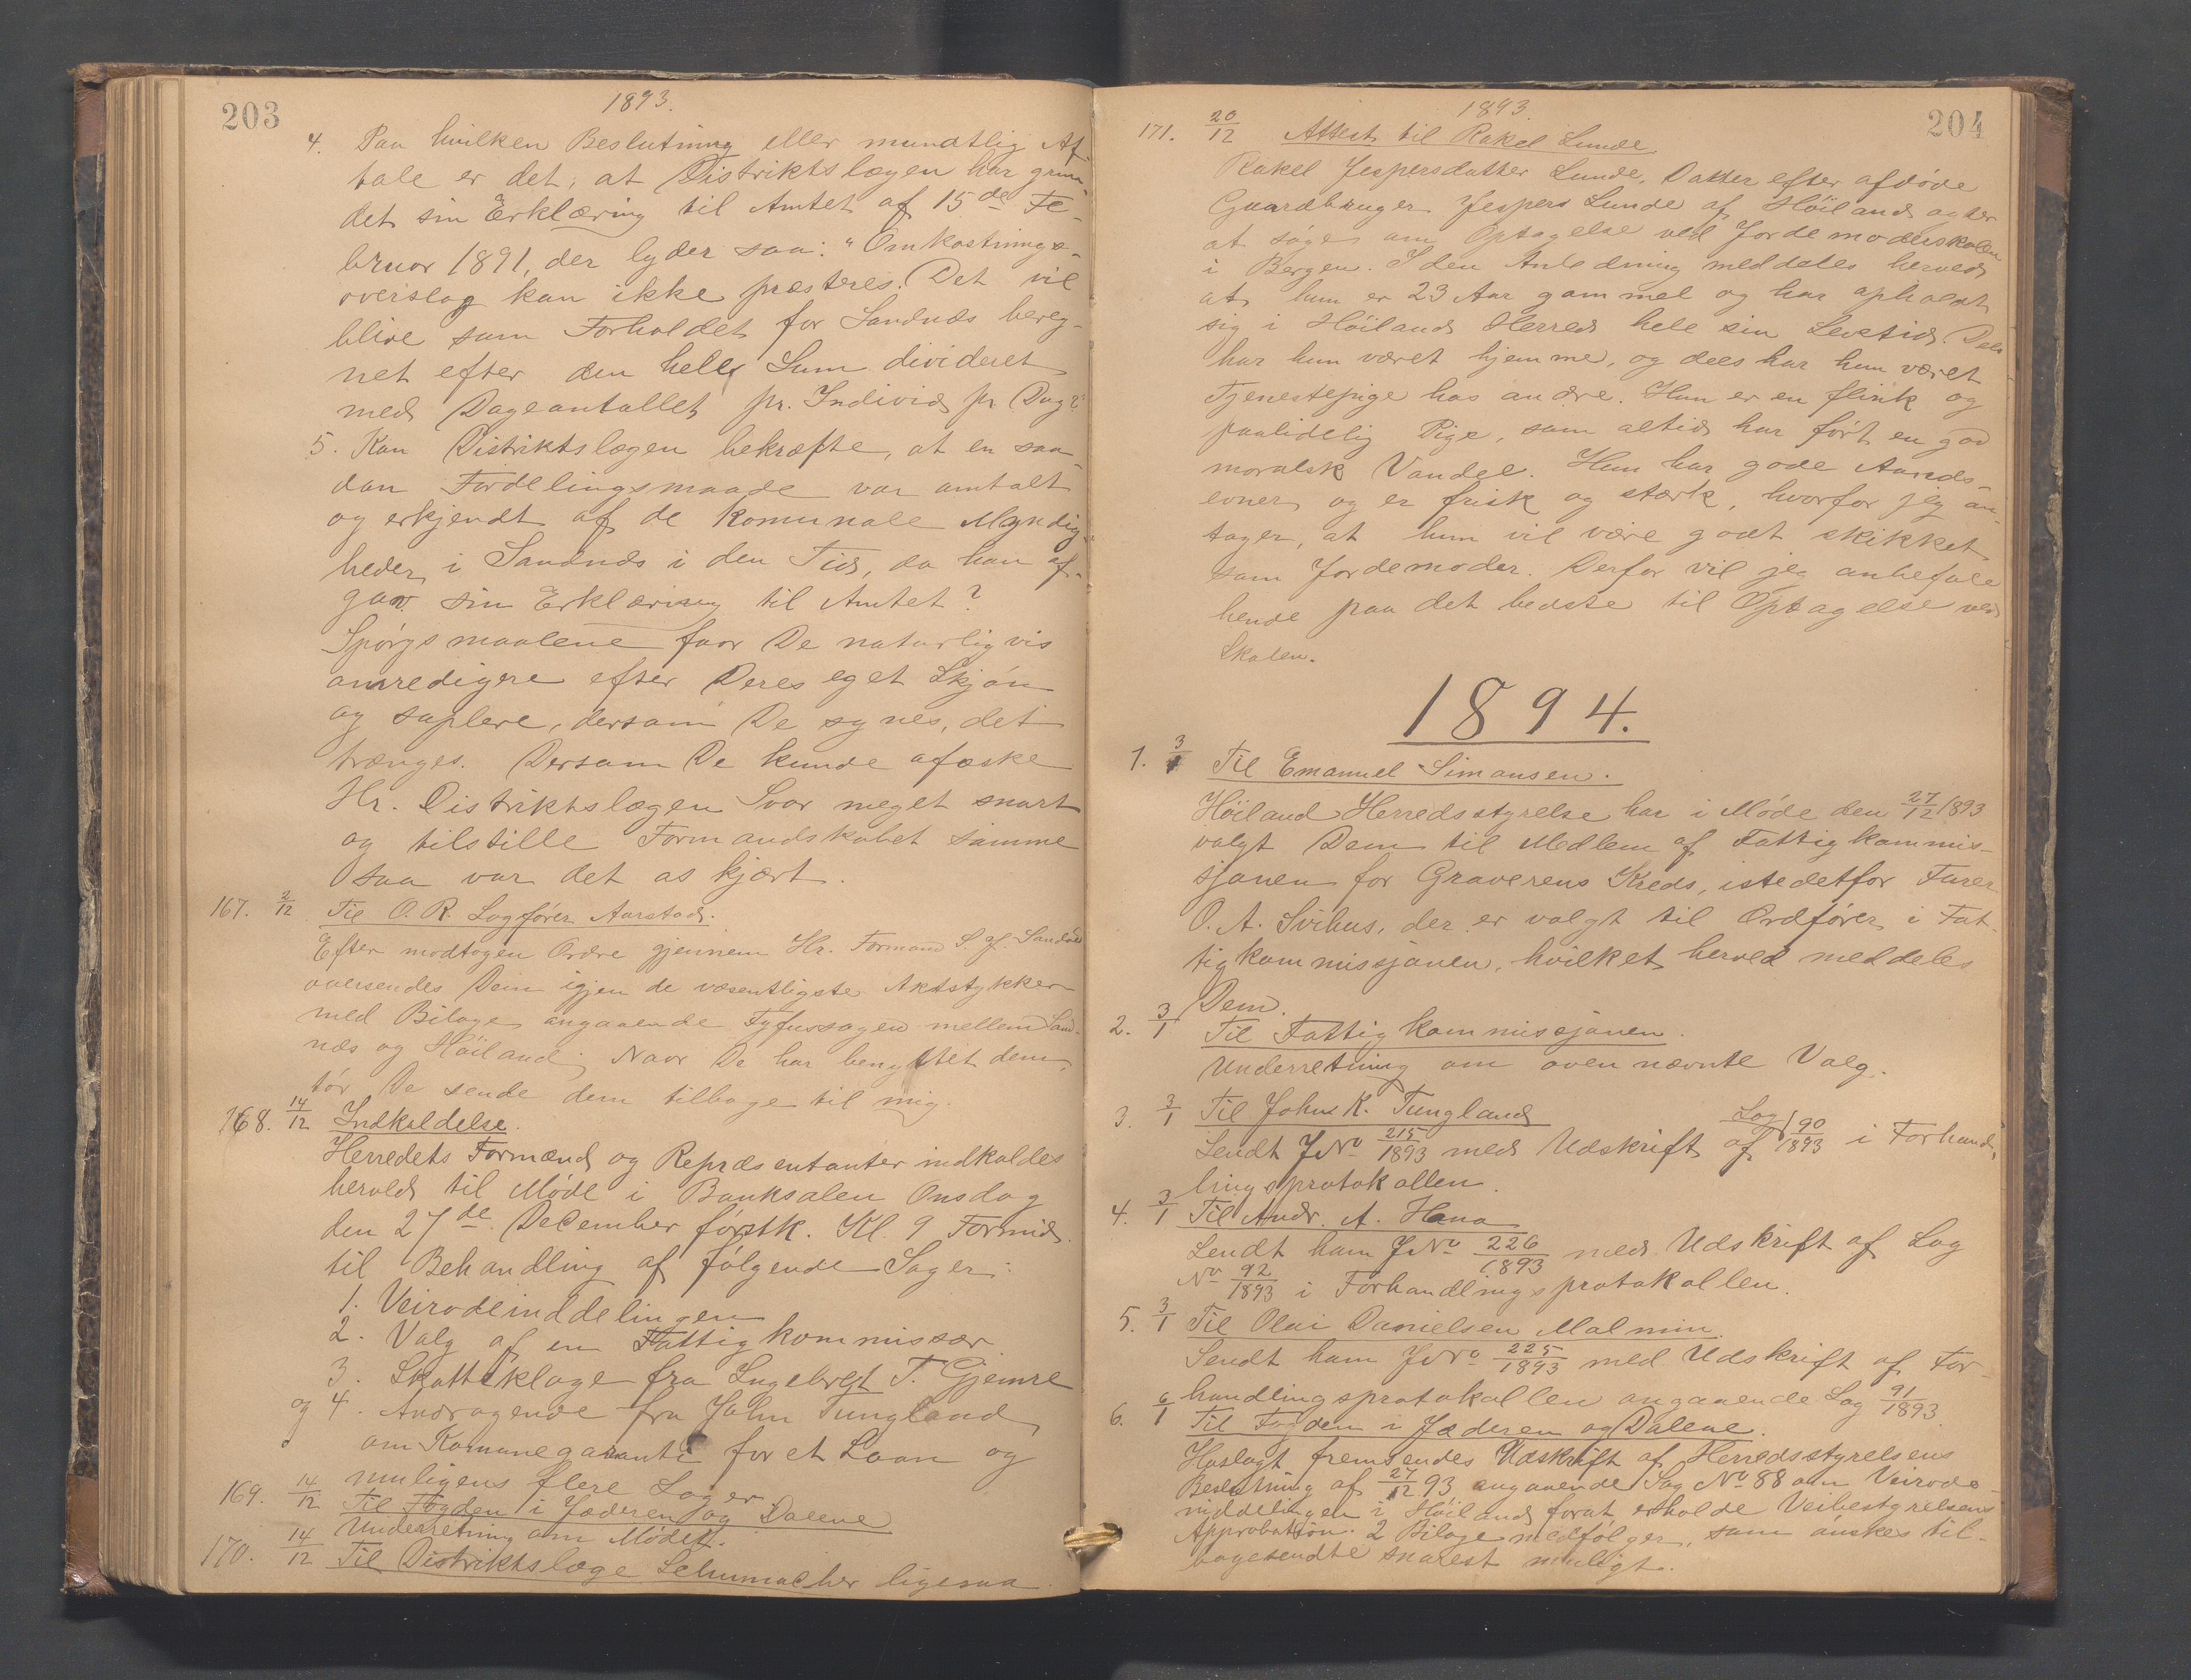 203
1893.
4. Paa hvilken Beslutning eller mundtlig Af-
tale er det, at Distriktslægen har grun-
det sin Erklæring til Amtet af 15de Fe-
bruar 1891, der lyder saa: "Omkostnings-
overslag kan ikke præsteres. Det vil
blive som Forholdet for Sandnæs bereg-
net efter den hele Sum divideret
med Dageantallet pr. Individ pr. Dag?"
5. Kan Distriktslægen bekræfte, at en saa-
dan Fordelingsmaade var amtalt
og erkjendt af de komunale Myndig-
heder i Sandnæs i den Tid, da han af-
gav sin Erklæring til Amtet?
Spørgsmaalene faar De naturligvis
omredigere efter Deres eget Skjøn
og suplere, dersom De synes, det
trænges. Dersom De kunde afæske
Hr. Distriktslægen Svar meget snart
og tilstille Formandskabet samme
saa var det os kjært.
167. 2/12 Til O. R. Sagfører Aarstad.
Efter modtagen Ordre gjennem Hr. Formand S. gf. Sandved
oversendes Dem igjen de væsentligste Aktstykker
med Bilage angaaende Tyfussagen mellem Sand-
næs og Høiland; Naar De har benyttet dem,
tør De sende dem tilbage til mig.
168. 14/12 Indkaldelse.
Herredets Formænd og Repræsentanter indkaldes
herved til Møde i Banksalen Onsdag
den 27de December førstk. Kl. 9 Formid.
til Behandling af følgende Sager:
1. Veirodeinddelingen
2. Valg af en Fattigkommissær
3. Skatteklage fra Ingebregt T. Gjemre
og 4. Andragende fra John Tungland
om Komunegaranti for et Laan og
muligens flere Sager.
169. 14/12 Til Fogden i Jæderen og Dalene
Underretning om Mødet.
170. 14/12 Til Distriktslæge Schumacher ligesaa.
1893.
204
171. 20/12 Attest til Rakel Lunde
Rakel Jespersdatter Lunde, Datter efter afdøde
Gaardbruger Jespers Lunde af Høiland agter
at søge om Optagelse ved Jordemoderskolen
i Bergen. I den Anledning meddeles herved
at hun er 23 Aar gammel og har opholdt
sig i Høilands Herred hele sin Levetid. Dels
har hun været hjemme, og dels har hun været
Tjenestepige hos andre. Hun er en flink og
paalidelig Pige, som altid har ført en god
moralsk Vandel. Hun har gode Aands-
evner og er frisk og stærk, hvorfor jeg an-
tager, at hun vil være godt skikket
som Jordemoder. Derfor vil jeg anbefale
hende paa det bedste til Optagelse ved
Skolen.
1894.
1. 3/1 Til Emanuel Simonsen.
Høiland Herredsstyrelse har i Møde den 27/12 1893
valgt Dem til Medlem af Fattigkommis-
sjonen for Graverens Kreds, istedetfor
O. A. Svihus, der er valgt til Ordfører i Fat-
tigkommissjonen, hvilket herved meddeles
Dem.
2. 3/1 Til Fattigkommissjonen.
Underretning om ovennævnte Valg.
3. 3/1 Til John K. Tungland
Sendt JNo 215/1893 med Udskrift af Sag 90/1893 i Forhand-
lingsprotokollen.
4. 3/1 Til Andr. A. Hana
Sendt ham JNo 226/1893 med Udskrift af Sag
No 92/1893 i Forhandlingsprotokollen.
5. 3/1 Til Olai Danielsen Malmin.
Sendt ham JNo 225/1893 med Udskrift af For-
handlingsprotokollen angaaende Sag 91/1893.
6. 6/1 Til Fogden i Jæderen og Dalene.
Hoslagt fremsendes Udskrift af Herredsstyrelsens
Beslutning af 27/12 93 angaaende Sag No 88 om Veirode-
inddelingen i Høiland forat erholde Veibestyrelsens
Approbation. 2 Bilage medfølger, som ønskes til-
bagesendte snarest muligt.